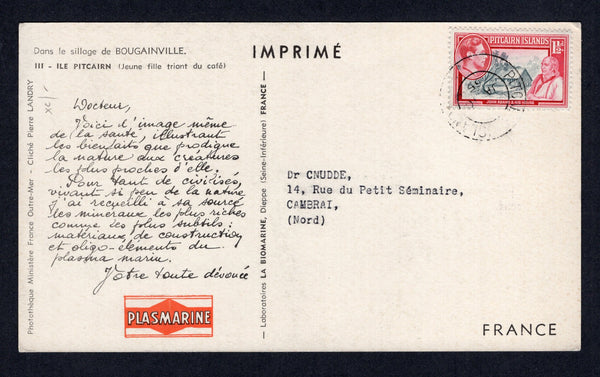 Dans le sillage de BOUGAINVILLE.
III - ILE PITCAIRN (Jeune fille triant du café)
Docteur,
Voici l'image même
de la santé, illustrant
les bienfaits que prodigue
la nature aux créatures
les plus proches d'elle.
Pour tant de civilisés,
vivant si peu de la nature
j'ai recueilli à sa source
les minéraux les plus riches
comme les plus subtils:
matériaux de construction
et oligo-éléments du
plasma marin.
Votre toute dévouée
PLASMARINE
Photothèque Ministère France Outre-Mer - Cliché Pierre LANDRY
— Laboratoires LA BIOMARINE, Dieppe (Seine-Inférieure) FRANCE —
IMPRIMÉ
PITCAIRN ISLANDS
1½d
JOHN ADAMS AND HIS HOUSE
Dr CNUDDE,
14, Rue du Petit Séminaire,
CAMBRAI,
(Nord)
FRANCE